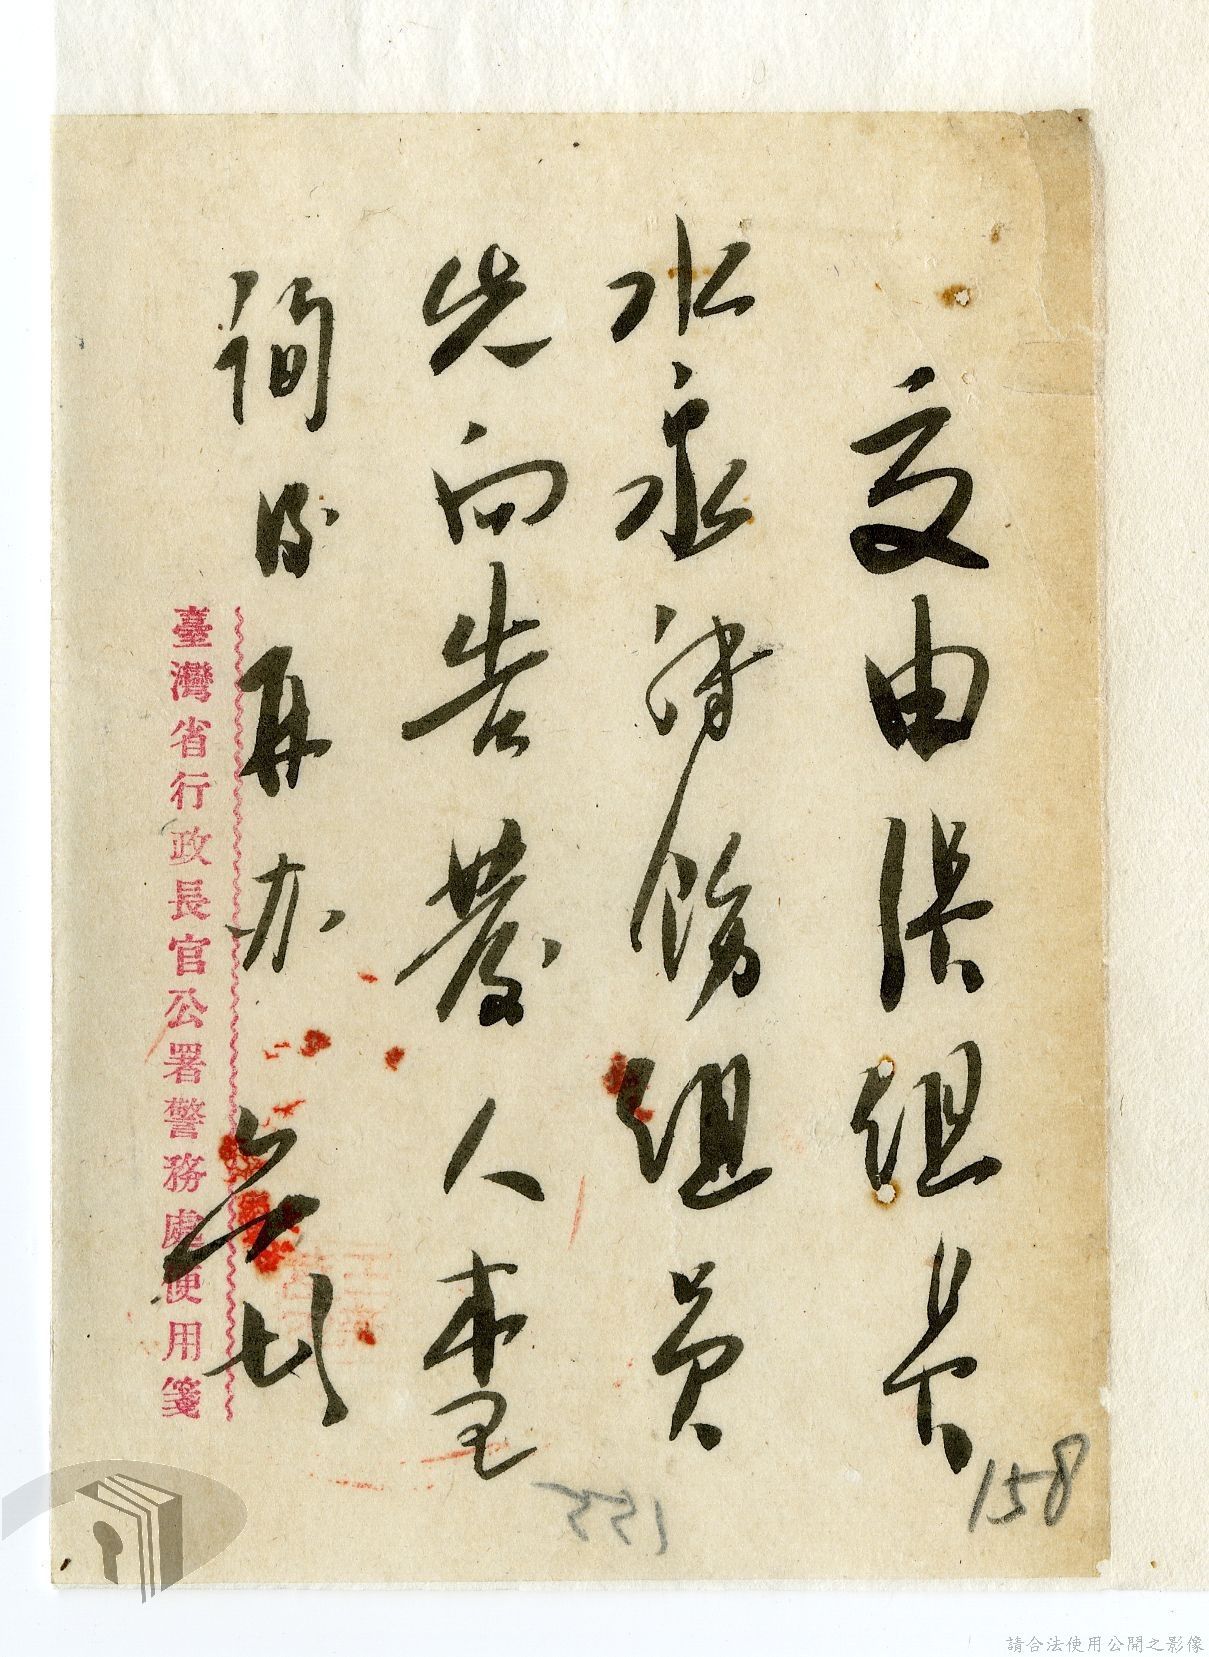 交由張組長
水永
組員
先向告發人查
詢後再办
臺灣省行政長官公署警務處使用箋
158
請合法使用公開之影像